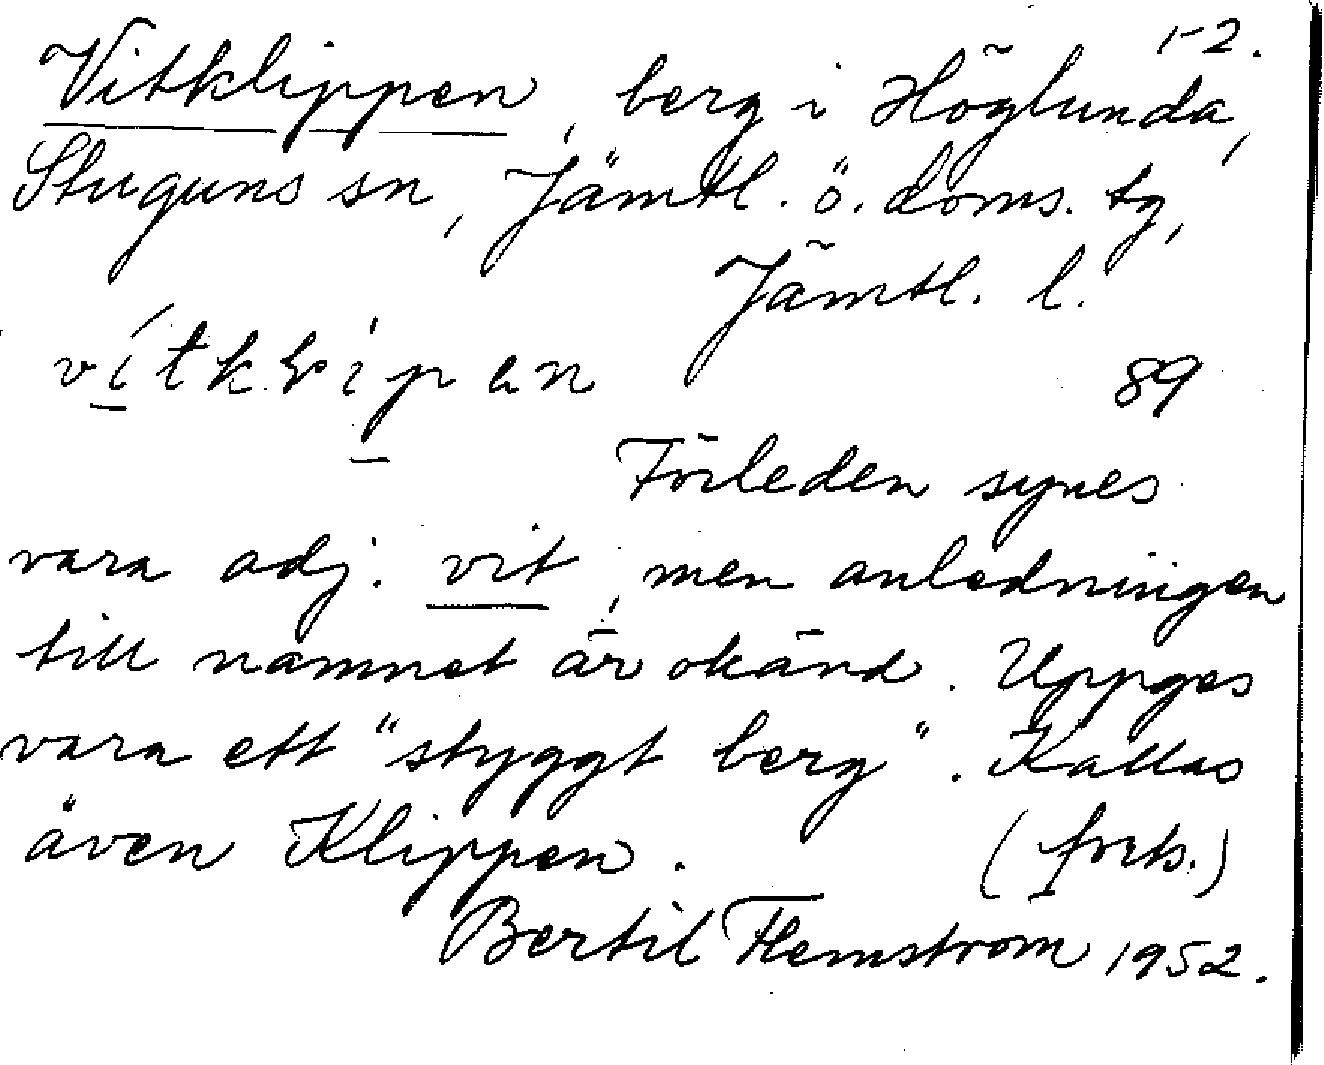 1-2.
Vitklippen, berg i Höglunda,
Stuguns sn, Jämtl. ö. doms. tg,
Jämtl. l.
89
Förleden synes
vara adj. vit, men anledningen
till namnet är okänd. Uppges
vara ett "styggt berg". Kallas
även Klippen. (forts.)
Bertil Flemström 1952.